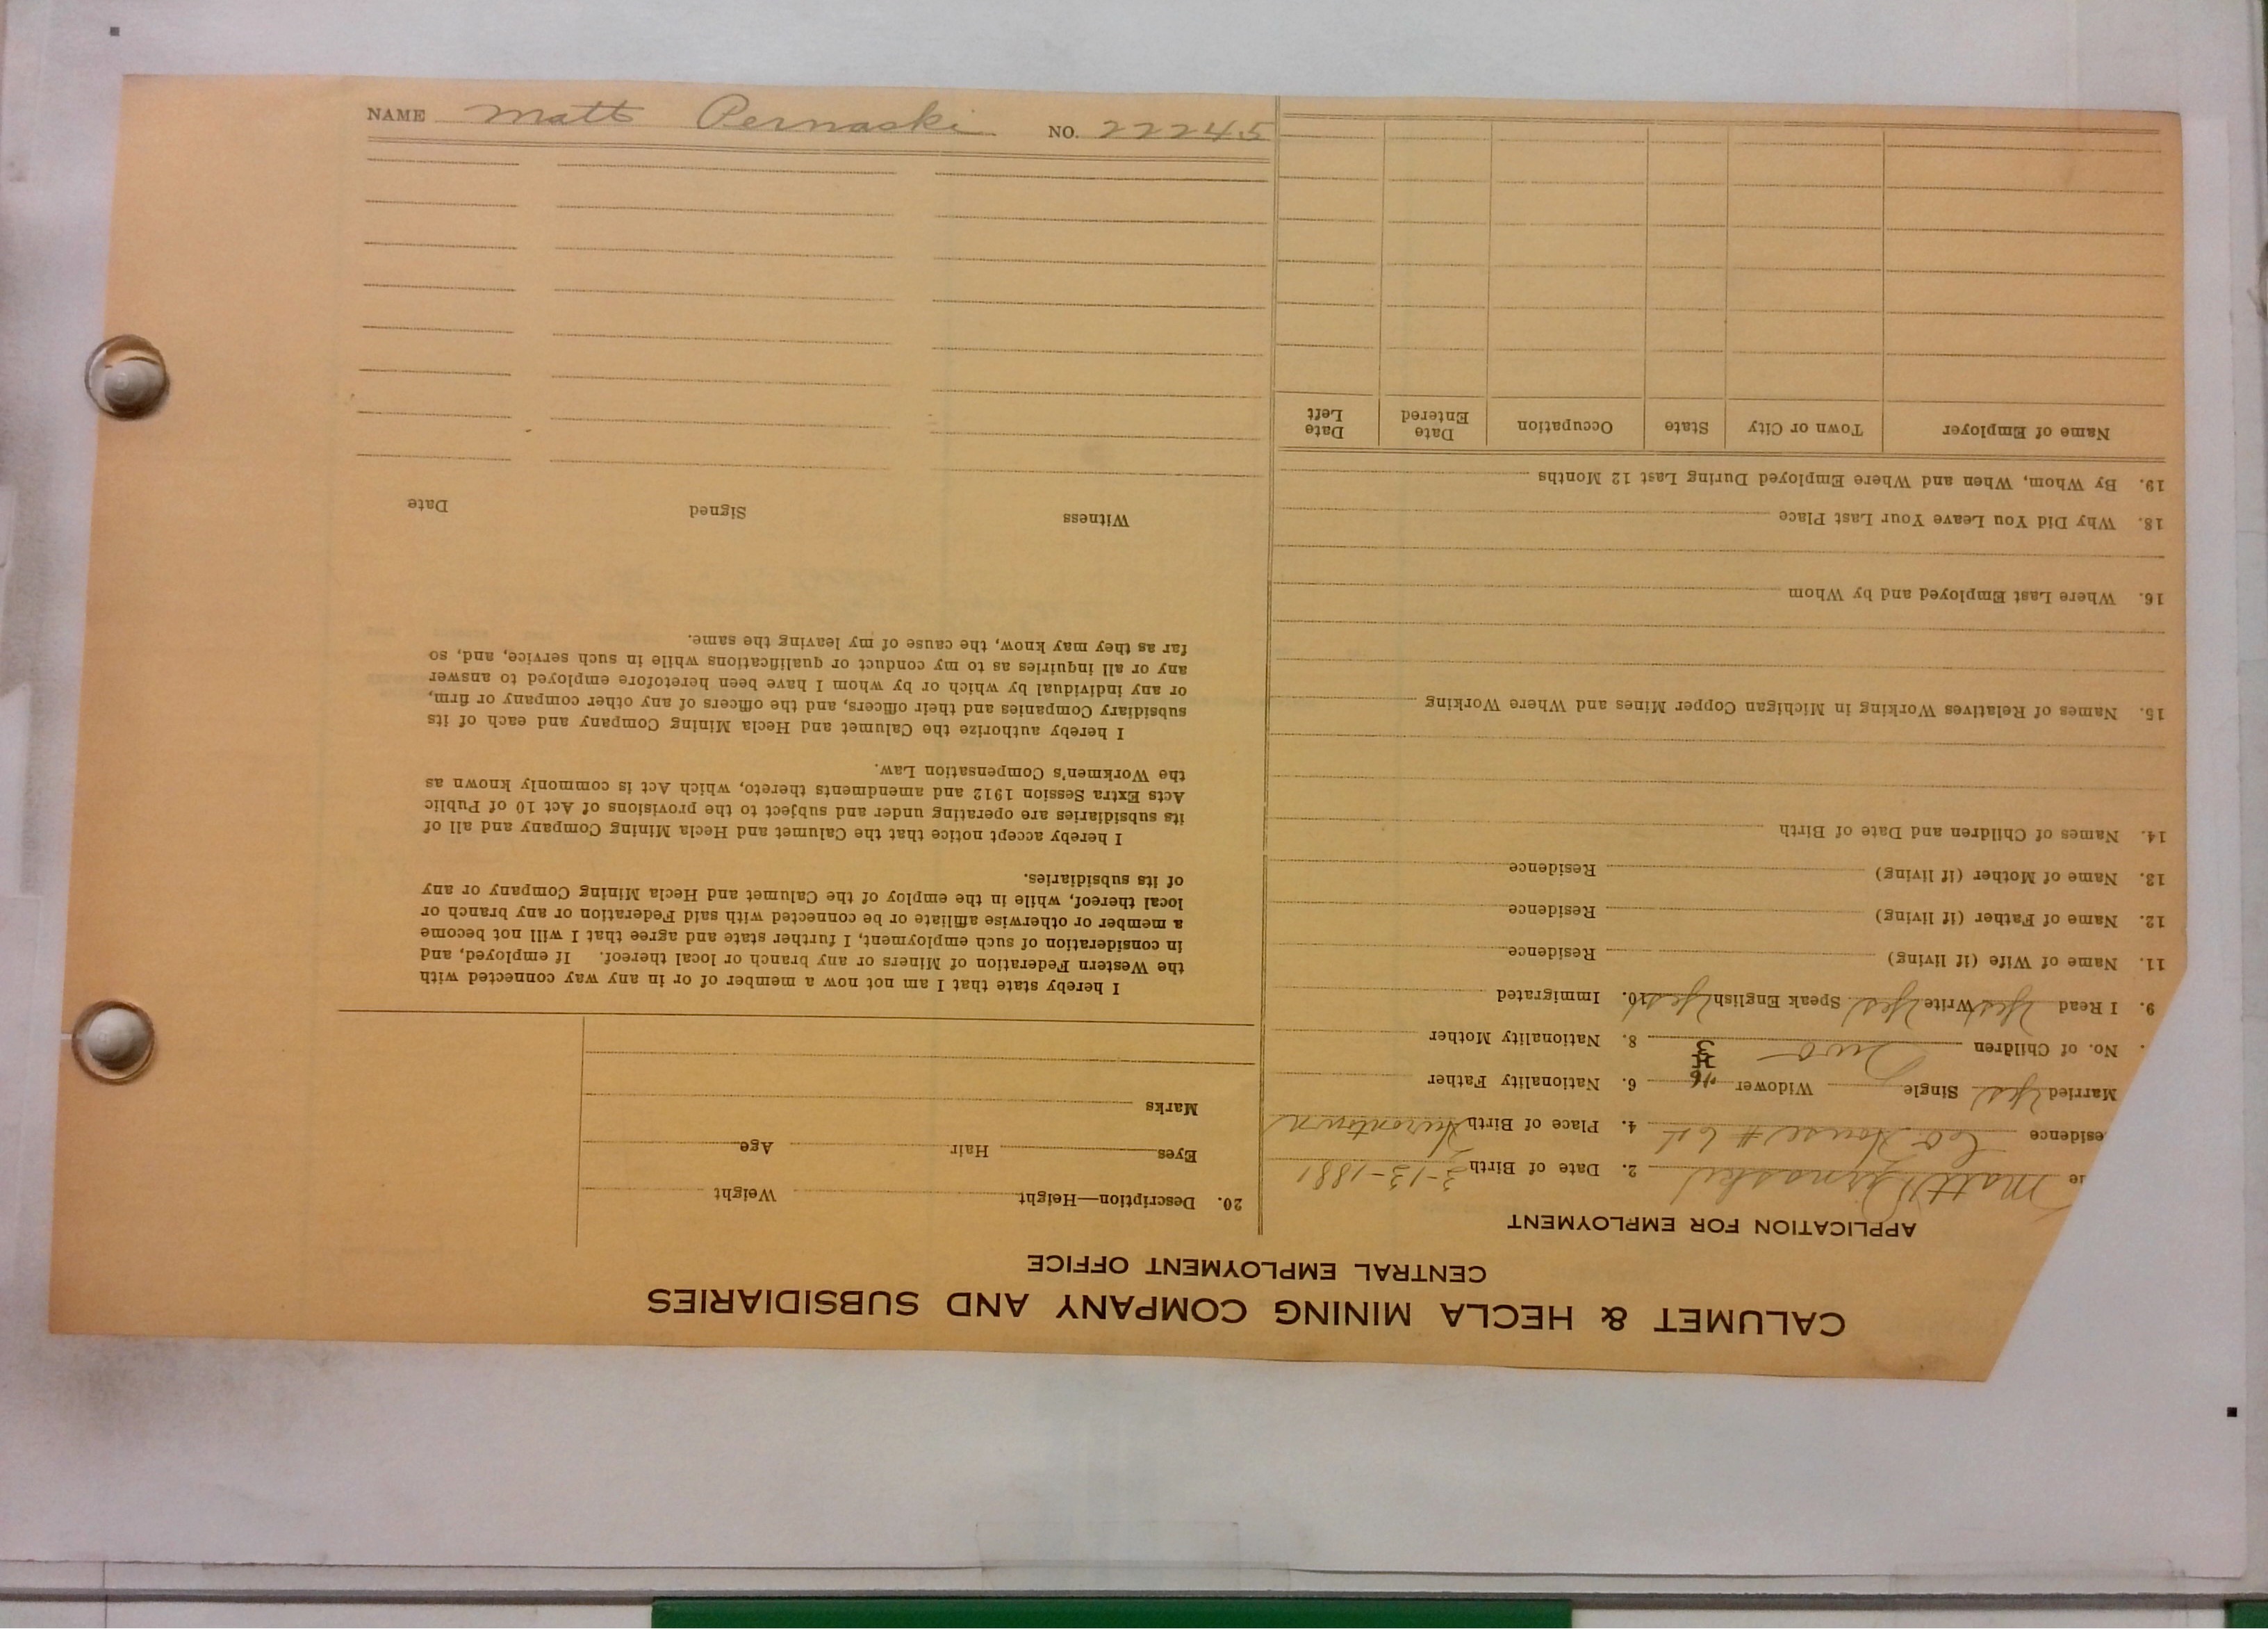 CALUMET & HECLA MINING COMPANY AND SUBSIDIARIES
CENTRAL EMPLOYMENT OFFICE
APPLICATION FOR EMPLOYMENT
me Matt Pernaski 2. Date of Birth 3-13-1881
esidence Co. House # 64 4. Place of Birth Hurontown
Married Yes Single Widower 6. Nationality Father
. No. of Children Two 8. Nationality Mother
9. I Read Yes Write Yes Speak English Yes 10. Immigrated
11. Name of Wife (if living) Residence
12. Name of Father (if living) Residence
13. Name of Mother (if living) Residence
14. Names of Children and Date of Birth
15. Names of Relatives Working in Michigan Copper Mines and Where Working
16. Where Last Employed and by Whom
18. Why Did You Leave Your Last Place
19. By Whom, When and Where Employed During Last 12 Months
Name of Employer Town or City State Occupation Date Entered Date Left
20. Description—Height Weight
Eyes Hair Age
Marks
I hereby state that I am not now a member of or in any way connected with
the Western Federation of Miners or any branch or local thereof. If employed, and
in consideration of such employment, I further state and agree that I will not become
a member or otherwise affiliate or be connected with said Federation or any branch or
local thereof, while in the employ of the Calumet and Hecla Mining Company or any
of its subsidiaries.
I hereby accept notice that the Calumet and Hecla Mining Company and all of
its subsidiaries are operating under and subject to the provisions of Act 10 of Public
Acts Extra Session 1912 and amendments thereto, which Act is commonly known as
the Workmen's Compensation Law.
I hereby authorize the Calumet and Hecla Mining Company and each of its
subsidiary Companies and their officers, and the officers of any other company or firm,
or any individual by which or by whom I have been heretofore employed to answer
any or all inquiries as to my conduct or qualifications while in such service, and, so
far as they may know, the cause of my leaving the same.
Witness Signed Date
NAME Matt Pernaski NO. 22245